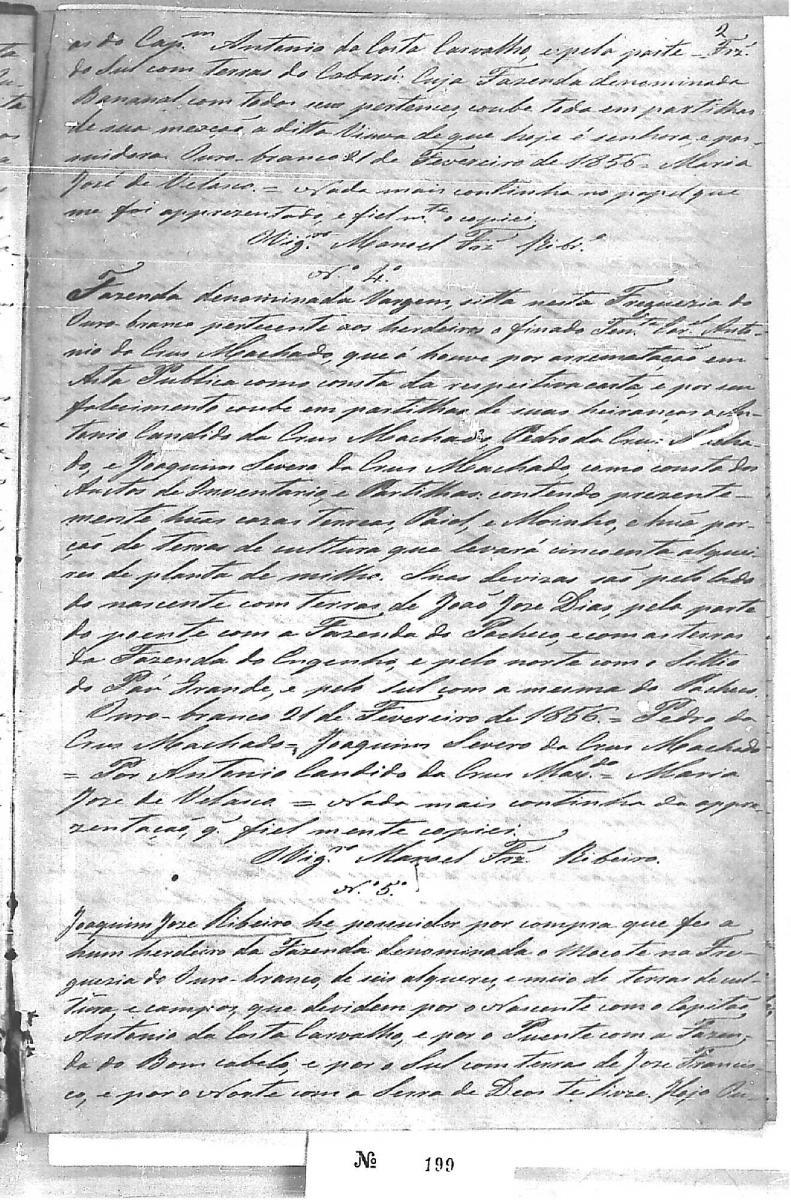 2
Frz.
as do Cap.m Antonio da Costa Carvalho, e pela parte
do Sul com terras do Cabarú. Cuja Fazenda denominada
Bananal com todos seus pertences, coube toda em partilhas
de sua meação, a ditta Viuva de que hoje é senhora, e pos-
suidora. Ouro-branco 21 de Fevereiro de 1856 = Maria
José de Velasco. = Nada mais continha no papel que
me foi apprezentado, e fielm.te o copiei.
Vig.ro Manoel Frz' Ribr.o
N.o 4.o
Fazenda denominada Vargem, sitta nesta Freguezia do
Ouro-branco pertecente aos herdeiros o finado Ten.te Cor.el Anto-
nio da Crus Machado, que á houve por arrematação em
Asta Publica como consta da respeitiva carta, e por seu
falecimento coube em partilhas de suas heiranças a An-
tonio Candido da Crus Machado, Pedro da Crus Macha-
do, e Joaquim Severo da Crus Machado, como consta dos
Auctos de Inventario, e Partilhas: contendo prezente-
mente húas cazas terreas, Paiol, e Moinho, e húa por-
ção de terras de cultura que levará cincoenta alquei-
res de planta de milho. Suas devizas são pelo lado
do nascente com terras de João Joze Dias, pela parte
do poente com a Fazenda do Pacheco, e com as terras
da Fazenda do Engenho, e pelo norte com o Sittio
do Páu Grande, e pelo Sul com a mesma do Pacheco.
Ouro-branco 21 de Fevereiro de 1856. = Pedro da
Crus Machado = Joaquim Severo da Crus Machado
= Por Antonio Candido da Crus Mac.do = Maria
Joze de Velasco. = Nada mais continha da appre-
zentação, q' fiel mente copiei.
Vig.ro Manoel Frz. Ribeiro.
N.o 5.o
Joaquim Joze Ribeiro he possuidor por compra que fes a
hum herdeiro da Fazenda denominada o Mocote na Fre-
guezia do Ouro-branco, de seis alqueres, e meio de terras de cul-
tura, e campos, que devidem por o Nascente com o Capitão
Antonio da Costa Carvalho, e por o Puente com a Fazen-
da do Bom cabelo, e por o Sul com terras de Joze Francis-
co, e por o Norte com a Serra de Deos te livre. Hojo Ou-
No 199